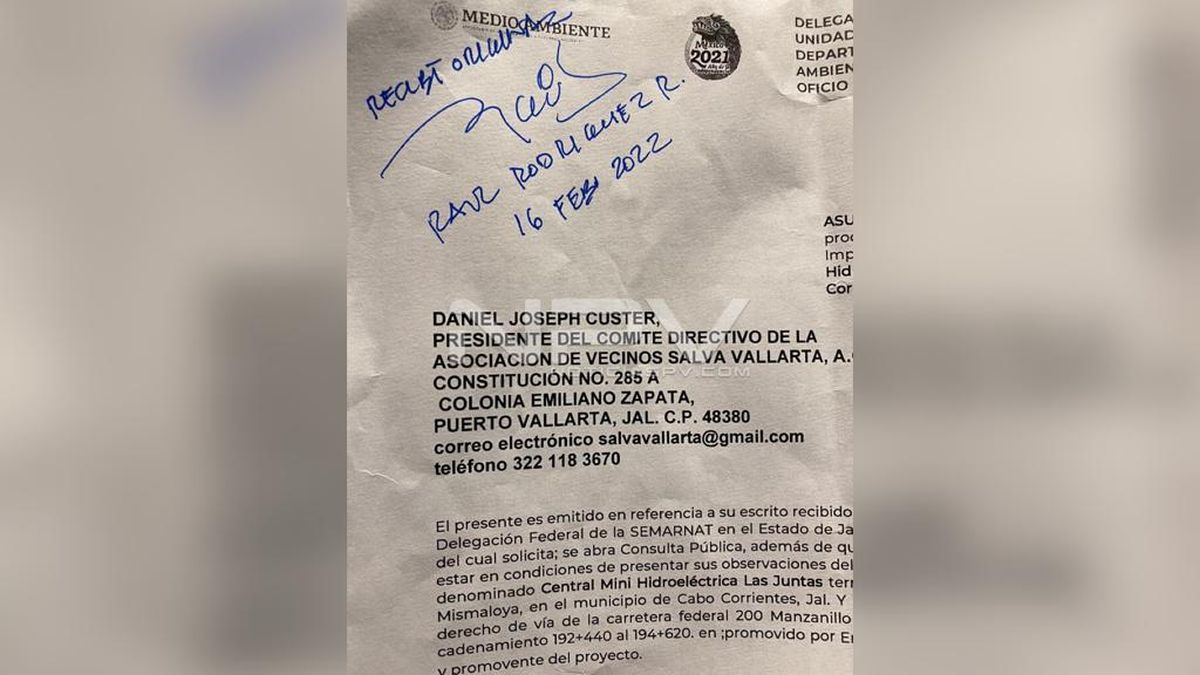 MEDIO AMBIENTE
México
2021
DELEGA
UNIDAD
DEPART
AMBIEN
OFICIO
RECIBÍ ORIGINAL
RAUL RODRIGUEZ R.
16 FEB 2022
ASU
proc
Imp
Hid
Cor
NPV
DANIEL JOSEPH CUSTER,
PRESIDENTE DEL COMITE DIRECTIVO DE LA
ASOCIACION DE VECINOS SALVA VALLARTA, A.C
CONSTITUCIÓN NO. 285 A
COLONIA EMILIANO ZAPATA,
PUERTO VALLARTA, JAL. C.P. 48380
correo electrónico salvavallarta@gmail.com
teléfono 322 118 3670
El presente es emitido en referencia a su escrito recibido
Delegación Federal de la SEMARNAT en el Estado de Ja
del cual solicita; se abra Consulta Pública, además de qu
estar en condiciones de presentar sus observaciones del
denominado Central Mini Hidroeléctrica Las Juntas terr
Mismaloya, en el municipio de Cabo Corrientes, Jal. Y
derecho de vía de la carretera federal 200 Manzanillo
cadenamiento 192+440 al 194+620. en ;promovido por En
y promovente del proyecto.